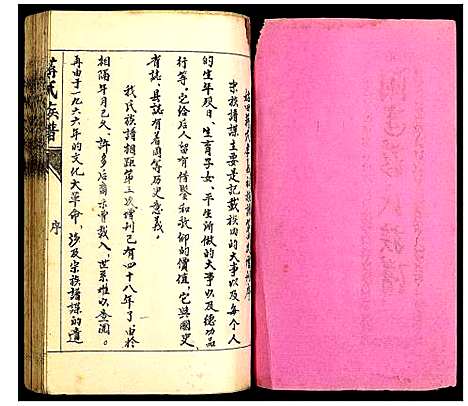 宗族譜諜主要是記載族内的大事以及每个人
的生年殁日、生育子女、平生所做的大事以及德功品
行等。它给后人留有借鑒和敬仰的價值，它與國史
有誌、县誌有着同等历史意義。
我氏族譜相距第三次增刊已有四十八年了由於
相隔年月已久、許多后裔未曾載入，世系难以查閲。
再由于一九六六年的文化大革命，涉及宗族譜諜的遺
蔣氏族譜
序